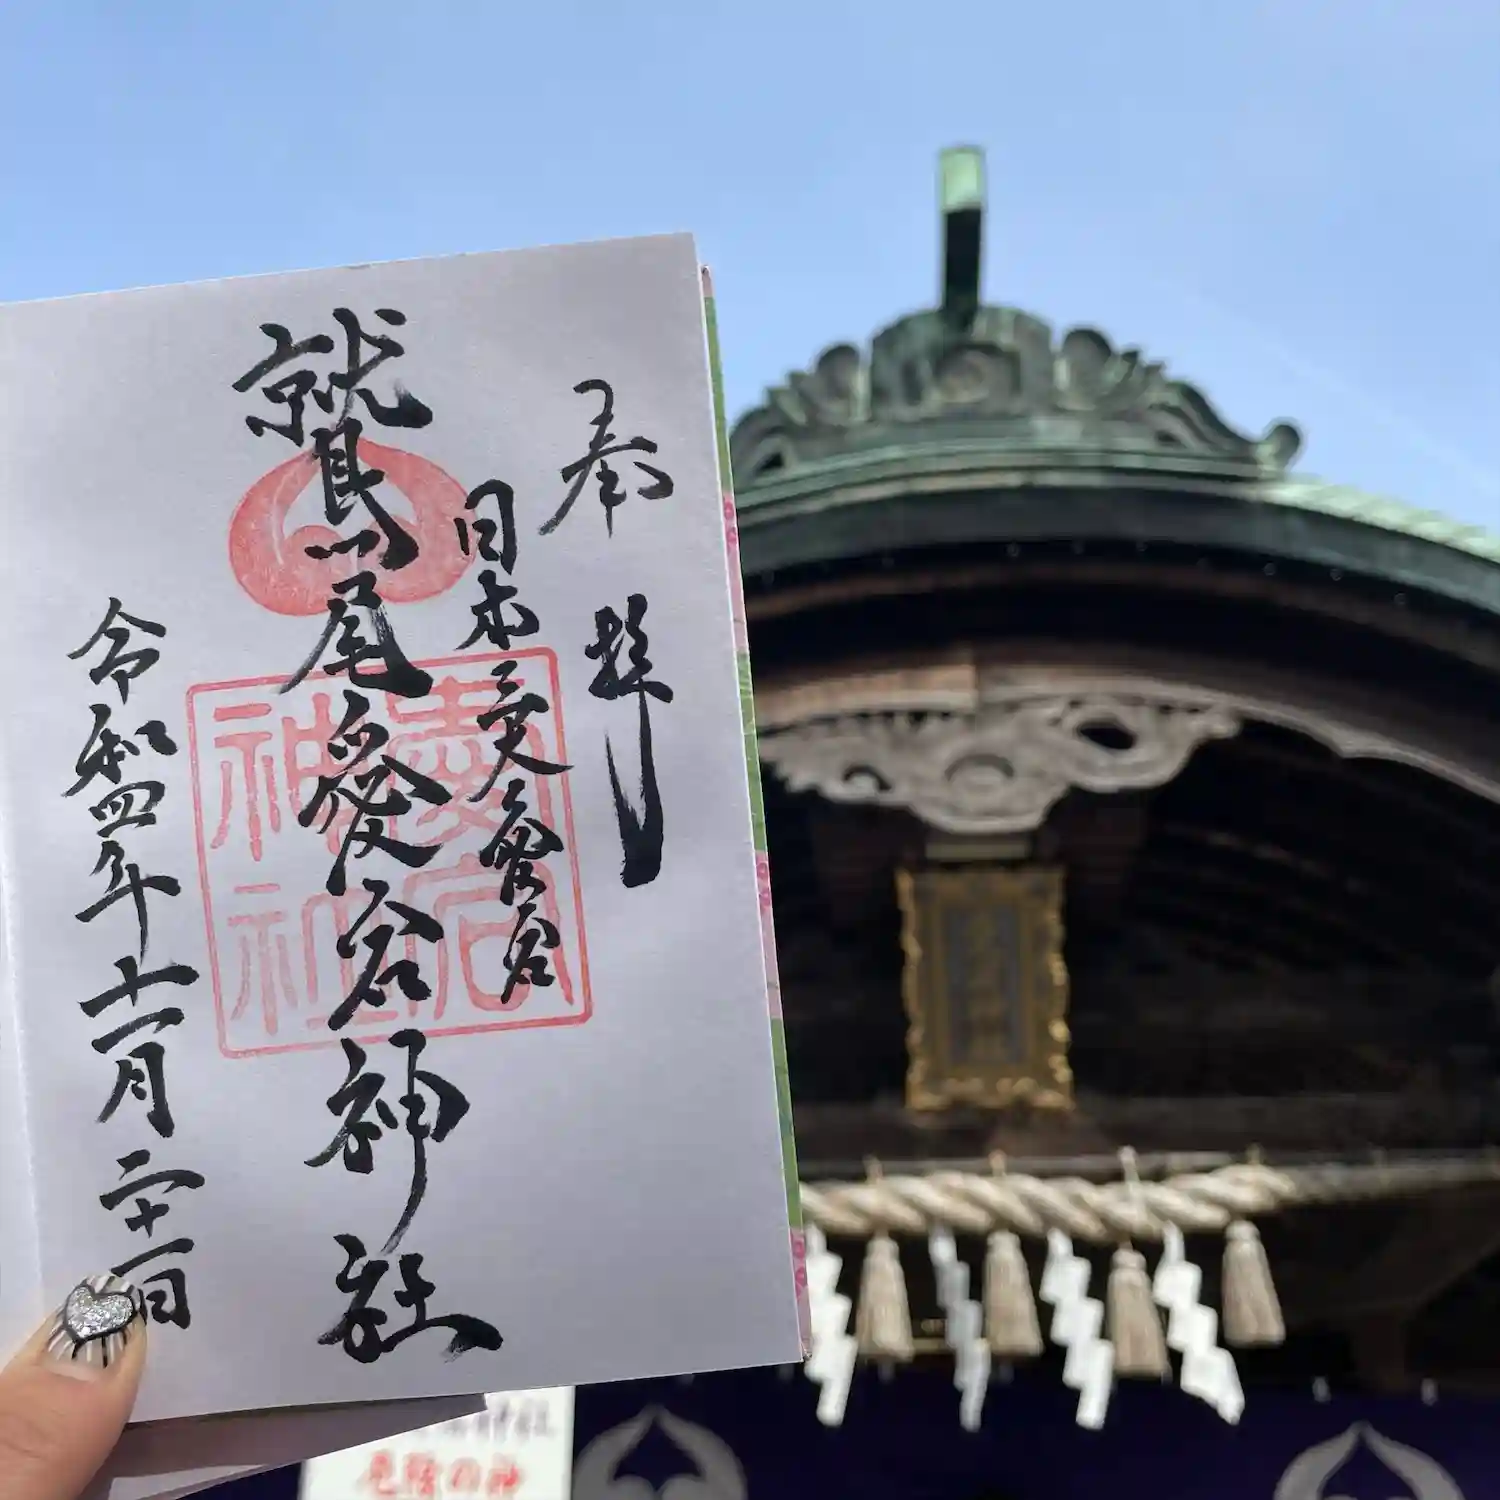 奉拝
日本三大愛宕
鷲尾愛宕神社
愛宕
神社
令和四年十一月二十一日
厄除の神